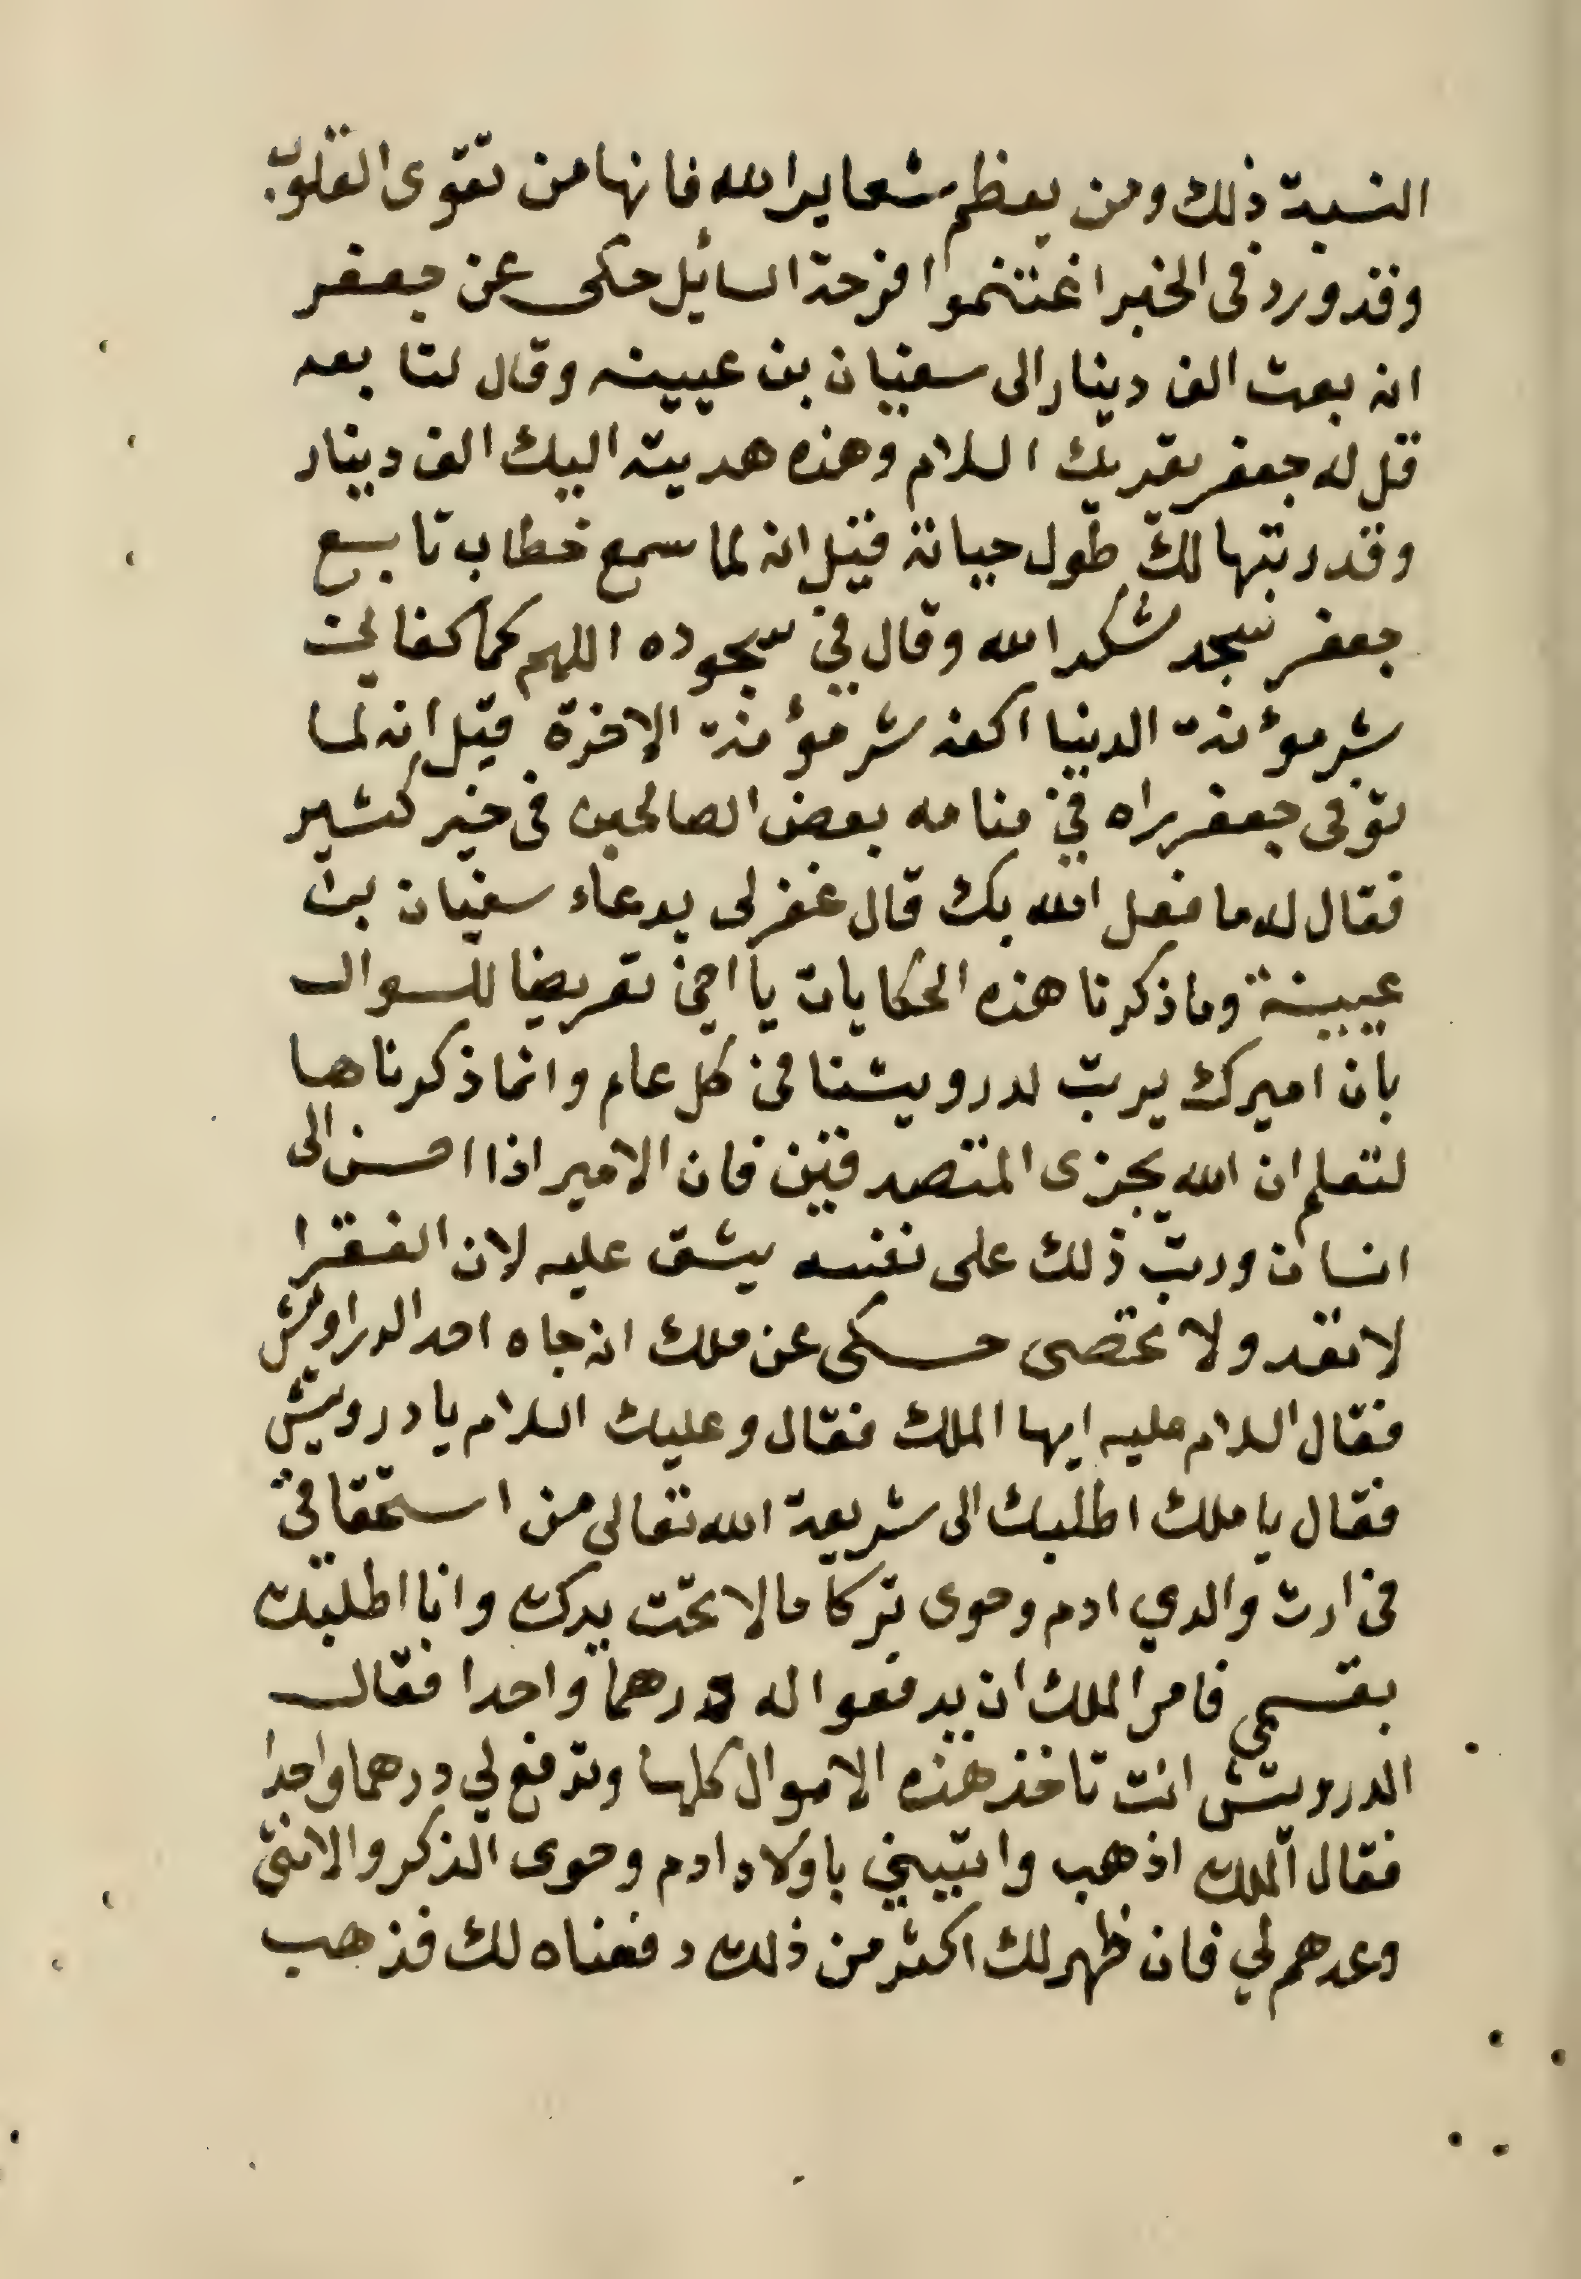 النسبة ذلك ومن يعظم شعاير الله فانها من تقوى القلوب
وقد ورد في الخبر اغتنموا فرحة السايل حكى عن جعفر
انه بعث الف دينار الى سفيان بن عيينه وقال لتابعه
قل له جعفر يقريك السلام وهذه هديته اليك الف دينار
وقد رتبها لك طول حياته فقيل انه لما سمع خطاب تابع
جعفر سجد شكرا لله وقال في سجوده اللهم كما كفاني
شر مؤنة الدنيا اكفه شر مؤنة الاخرة قيل انه لما
توفى جعفر راه في منامه بعض الصالحين في خير كثير
فقال له ما فعل الله بك قال غفر لى بدعاء سفيان بن
عيينة وما ذكرنا هذه الحكايات يا اخي تعريضا للسوال
بان اميرك يرتب لدرويشنا في كل عام وانما ذكرناها
لتعلم ان الله يجزى المتصدقين فان الامير اذا احسن الى
انسان ورتب ذلك على نفسه يشق عليه لان الفقرا
لا تعد ولا تحصى حكى عن ملك انه جاه احد الدراويش
فقال السلام عليه ايها الملك فقال وعليك السلام يا درويش
فقال يا ملك اطلبك الى شريعة الله تعالى من استحقاقي
في ارث والدي ادم وحوى تركا مالا تحت يدك وانا اطلبك
بقسمي فامر الملك ان يدفعوا له درهما واحدا فقال
الدرويش انت تاخذ هذه الاموال كلها وتدفع لي درهما واحدا
فقال الملك اذهب وايتيني باولاد ادم وحوى الذكر والانثى
وعدهم لي فان ظهر لك اكثر من ذلك دفعناه لك فذهب